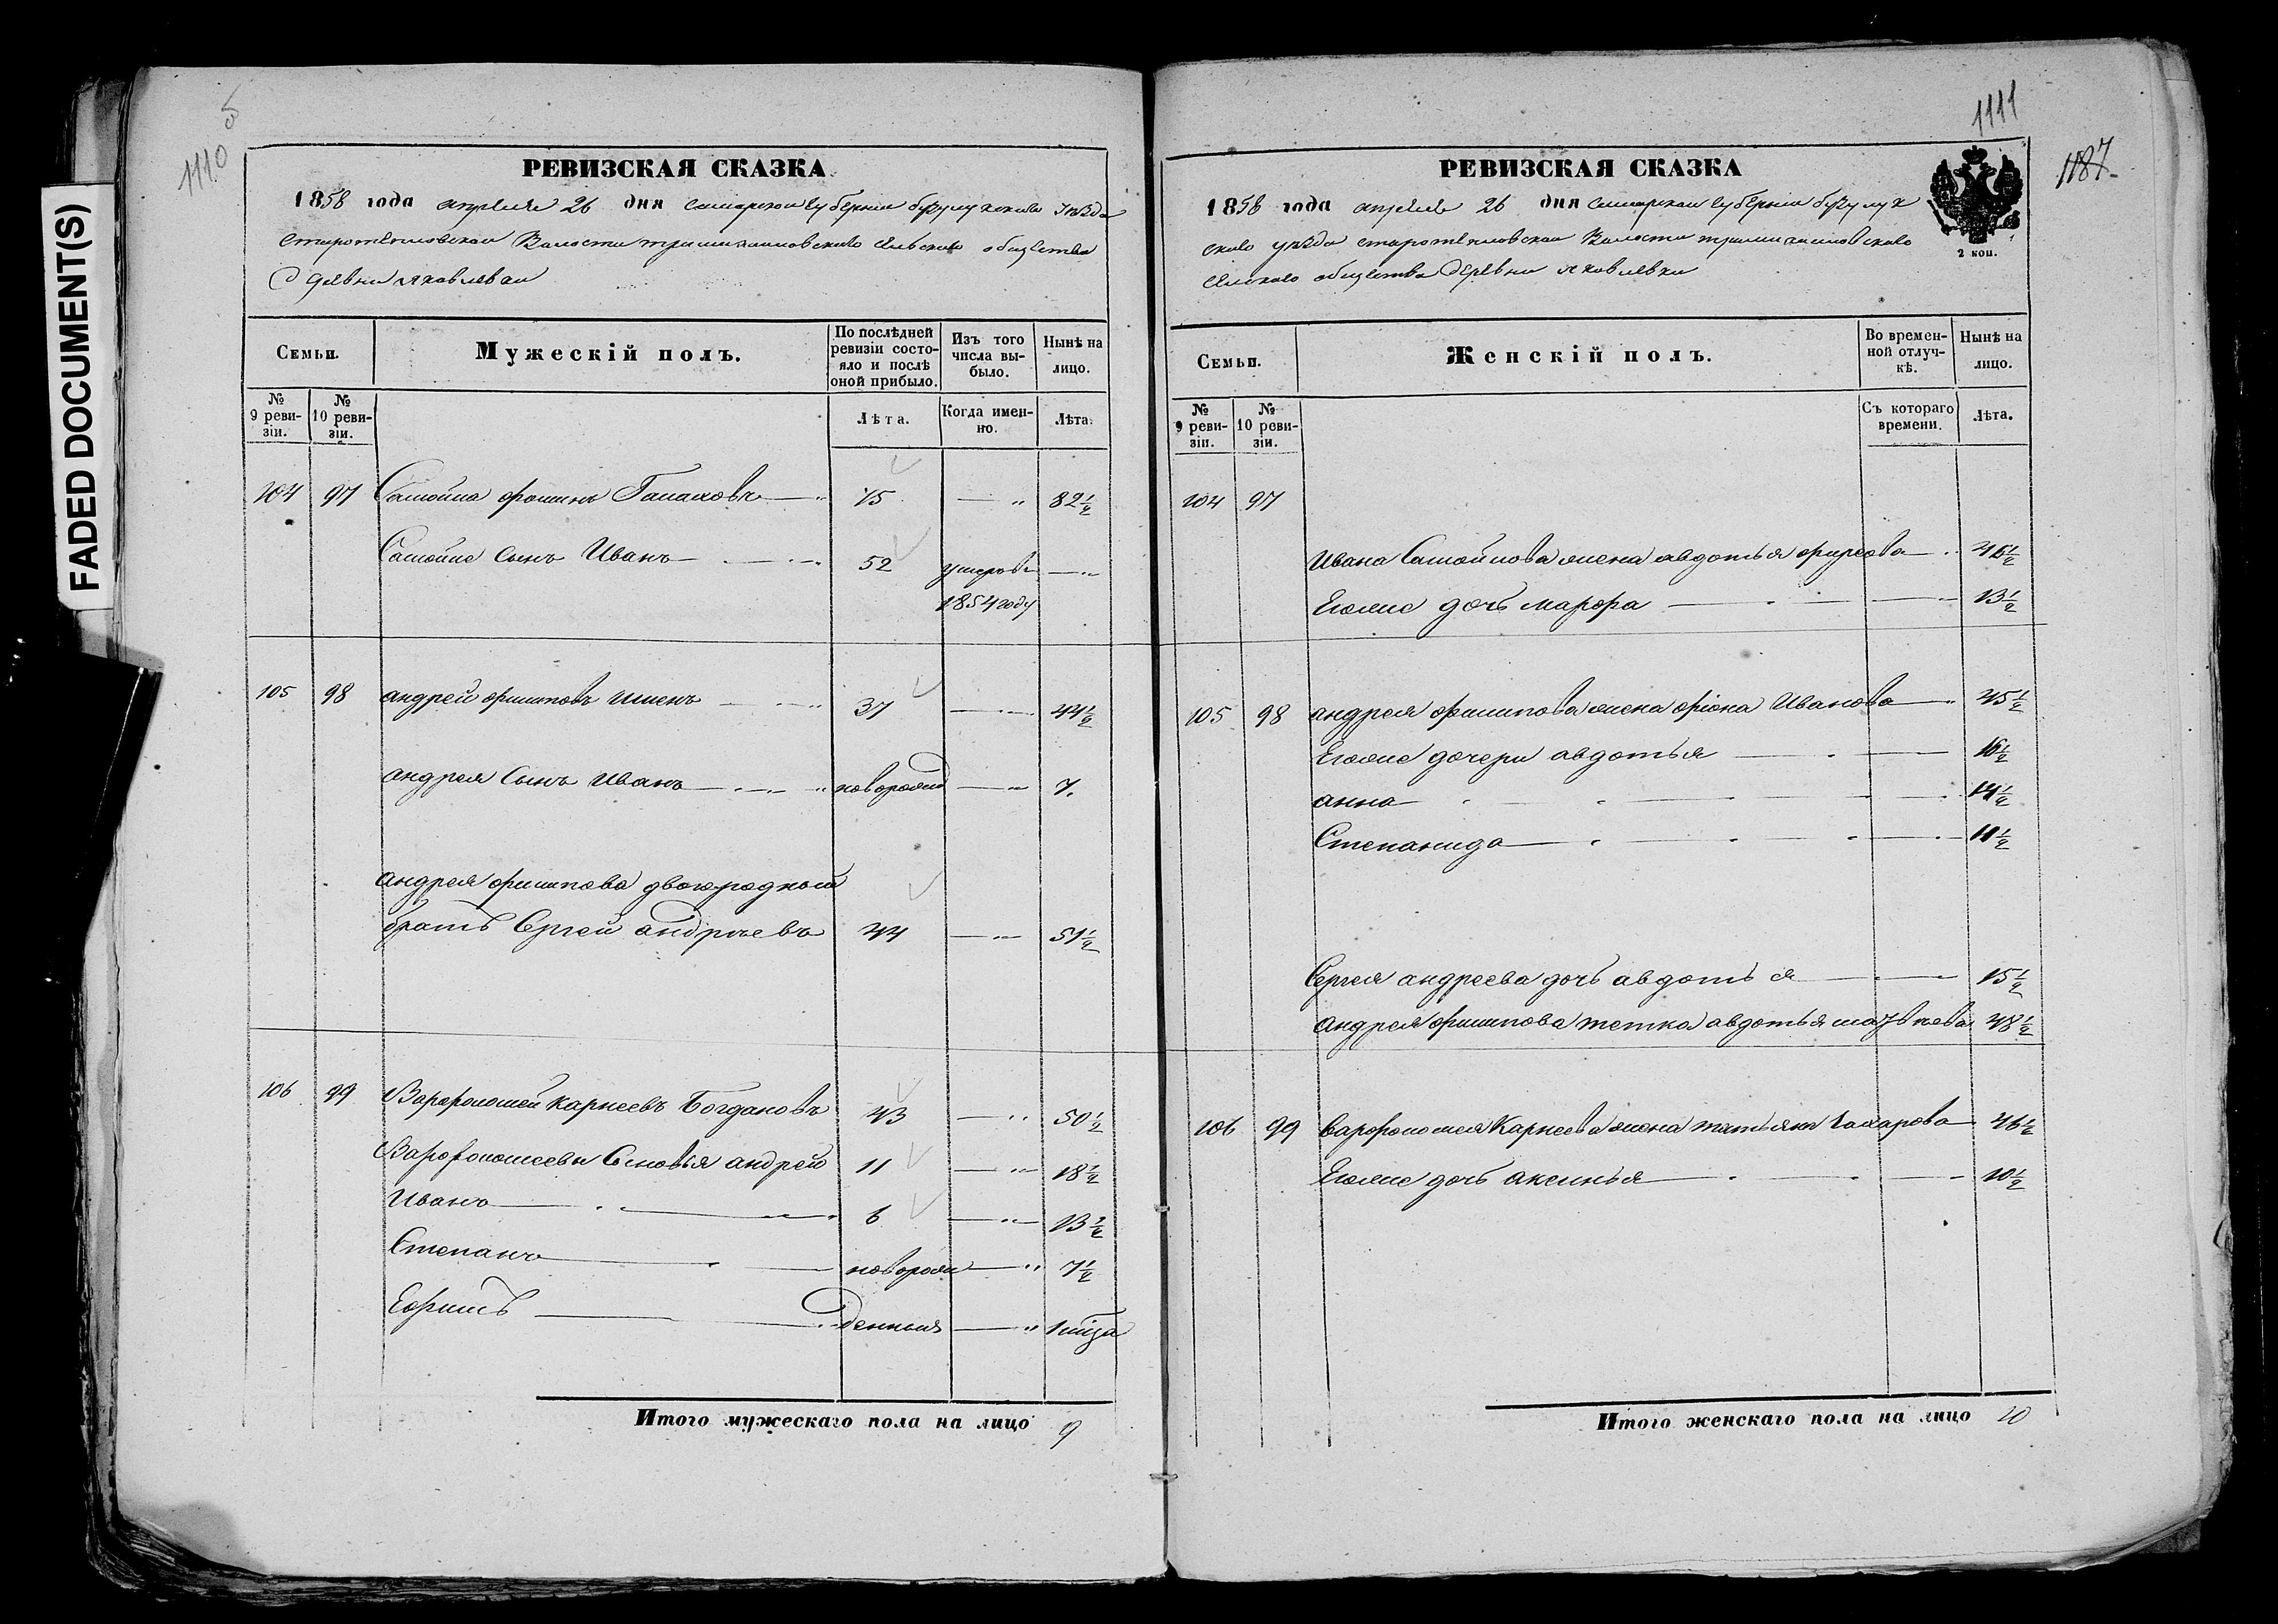 FADED DOCUMENT(S)
1110
РЕВИЗСКАЯ СКАЗКА
1858 года апреля 26 дня самарской губернии бузулукскаго уѣзда
Валости сельскаго общества
деревни яковлевки
Семьи.
Мужескій полъ.
По послѣдней ревизіи состояло и послѣ оной прибыло.
Изъ того числа выбыло.
Нынѣ на лицо.
№ 9 ревизіи.
№ 10 ревизіи.
Лѣта.
Когда именно.
Лѣта.
104 97 Самойла фоминъ 75 — 82½
Самойлы сынъ Иванъ 52 умеръ въ —
1854 году
105 98 андрей филиповъ 37 — 44½
андрея сынъ Иванъ новорожд — 7.
андрея филипова двоюродный
братъ Сергей андреевъ 44 — 51½
106 99 Варфоломей карнеевъ Богдановъ 43 — 50½
Варфоломеевы Сыновья андрей 11 — 18½
Иванъ 6 — 13½
Степанъ новорож — 7½
Ефимъ денныя —
Итого мужескаго пола на лицо 9
1111
1187
РЕВИЗСКАЯ СКАЗКА
1858 года апреля 26 дня самарской губернии бузулук
скаго уѣзда Валости
сельскаго общества деревни яковлевки
2 коп.
Семьи.
Женскій полъ.
Во временной отлучкѣ.
Нынѣ на лицо.
№ 9 ревизіи.
№ 10 ревизіи.
Съ котораго времени.
Лѣта.
104 97
Ивана Самойлова жена авдотья — 46½
Егоже дочь марфа — 13½
105 98 андрея филипова жена Иванова — 45½
Егоже дочери авдотья — 16½
анна — 14½
Степанида — 11½
Сергея андреева дочь авдотья — 15½
андрея филипова тетка авдотья 48½
106 99 варфоломея Карнеева жена татьяна 46½
Егоже дочь аксинья — 10½
Итого женскаго пола на лицо 10